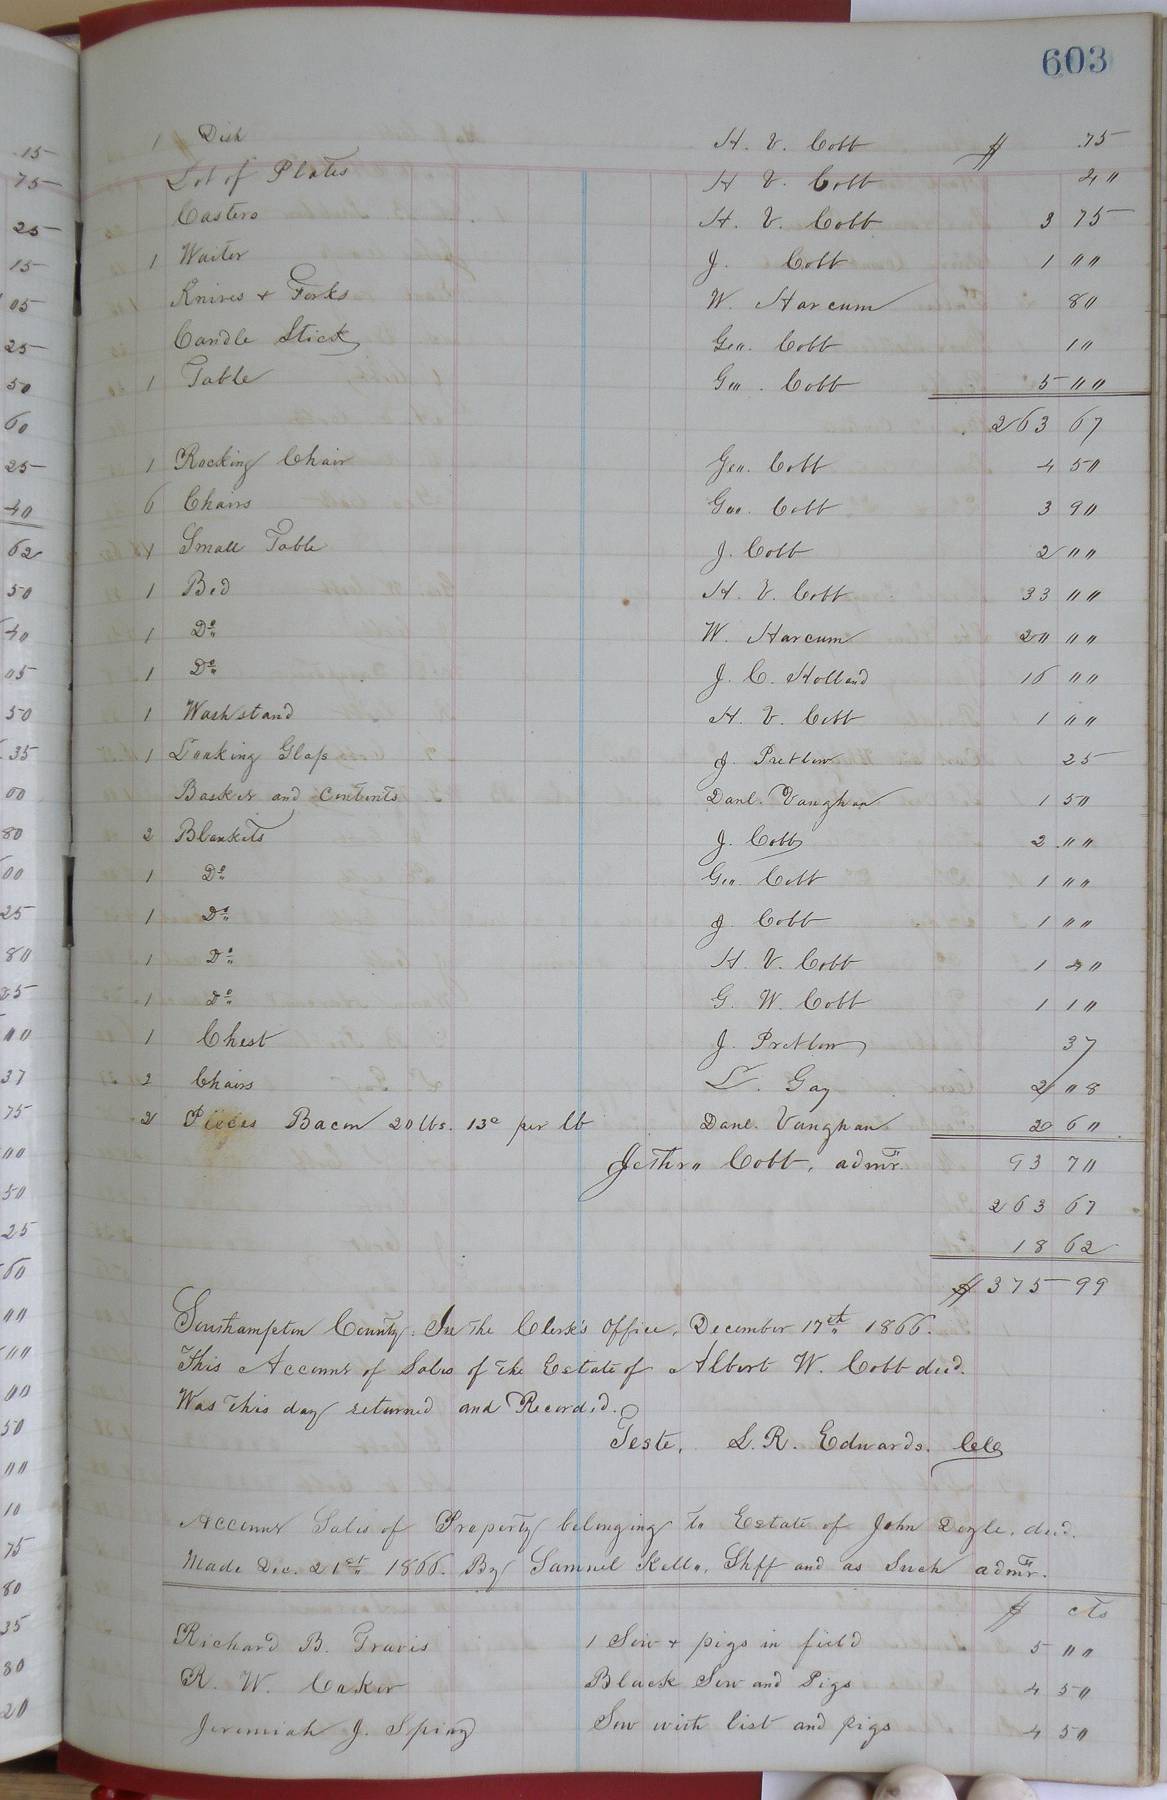 603
1 Dish H. V. Cobb $ .75
Lot of Plates H V. Cobb 40
Castors H. V. Cobb 3 75
1 Waiter J. Cobb 1 00
Knives & Forks W. Harcum 80
Candle Stick Geo. Cobb 10
1 Table Geo. Cobb 5 00
263 67
1 Rocking Chair Geo. Cobb 4 50
6 Chairs Geo. Cobb 3 90
1 Small Table J. Cobb 2 00
1 Bed H. V. Cobb 33 00
1 Do W. Harcum 20 00
1 Do J. C. Holland 16 00
1 Washstand H. V. Cobb 1 00
1 Looking Glass J. Pretlow 25
Basket and Contents Danl. Vaughan 1 50
2 Blankets J. Cobb 2 00
1 Do Geo Cobb 1 00
1 Do J Cobb 1 00
1 Do H. V. Cobb 1 40
1 Do G. W. Cobb 1 10
1 Chest J. Pretlow 37
2 Chairs L. Gay 2/08
2 Pieces Bacon 20 lbs. 13c per lb Danl. Vaughan 2 60
Jethro Cobb, admr. 93 70
263 67
18 62
$ 375 99
Southampton County: In the Clerk's Office, December 17th 1866.
This Account of Sales of the Estate of Albert W. Cobb decd.
Was this day returned and Recorded.
Teste, L. R. Edwards. CCC
Account Sales of Property belonging to Estate of John Doyle, decd.
Made Dec. 21st 1866. By Samuel Kello, Shff and as Such admr.
$ cts
Richard B. Travis 1 Sow & pigs in field 5 00
R. W. Caker Black Sow and Pigs 4 50
Jeremiah J. Spivy Sow with list and pigs 4 50
15
75
25
15
05
25
50
60
25
40
62
50
40
05
50
35
00
80
00
25
80
25
00
37
75
00
50
25
60
00
00
00
50
00
10
75
80
35
80
20